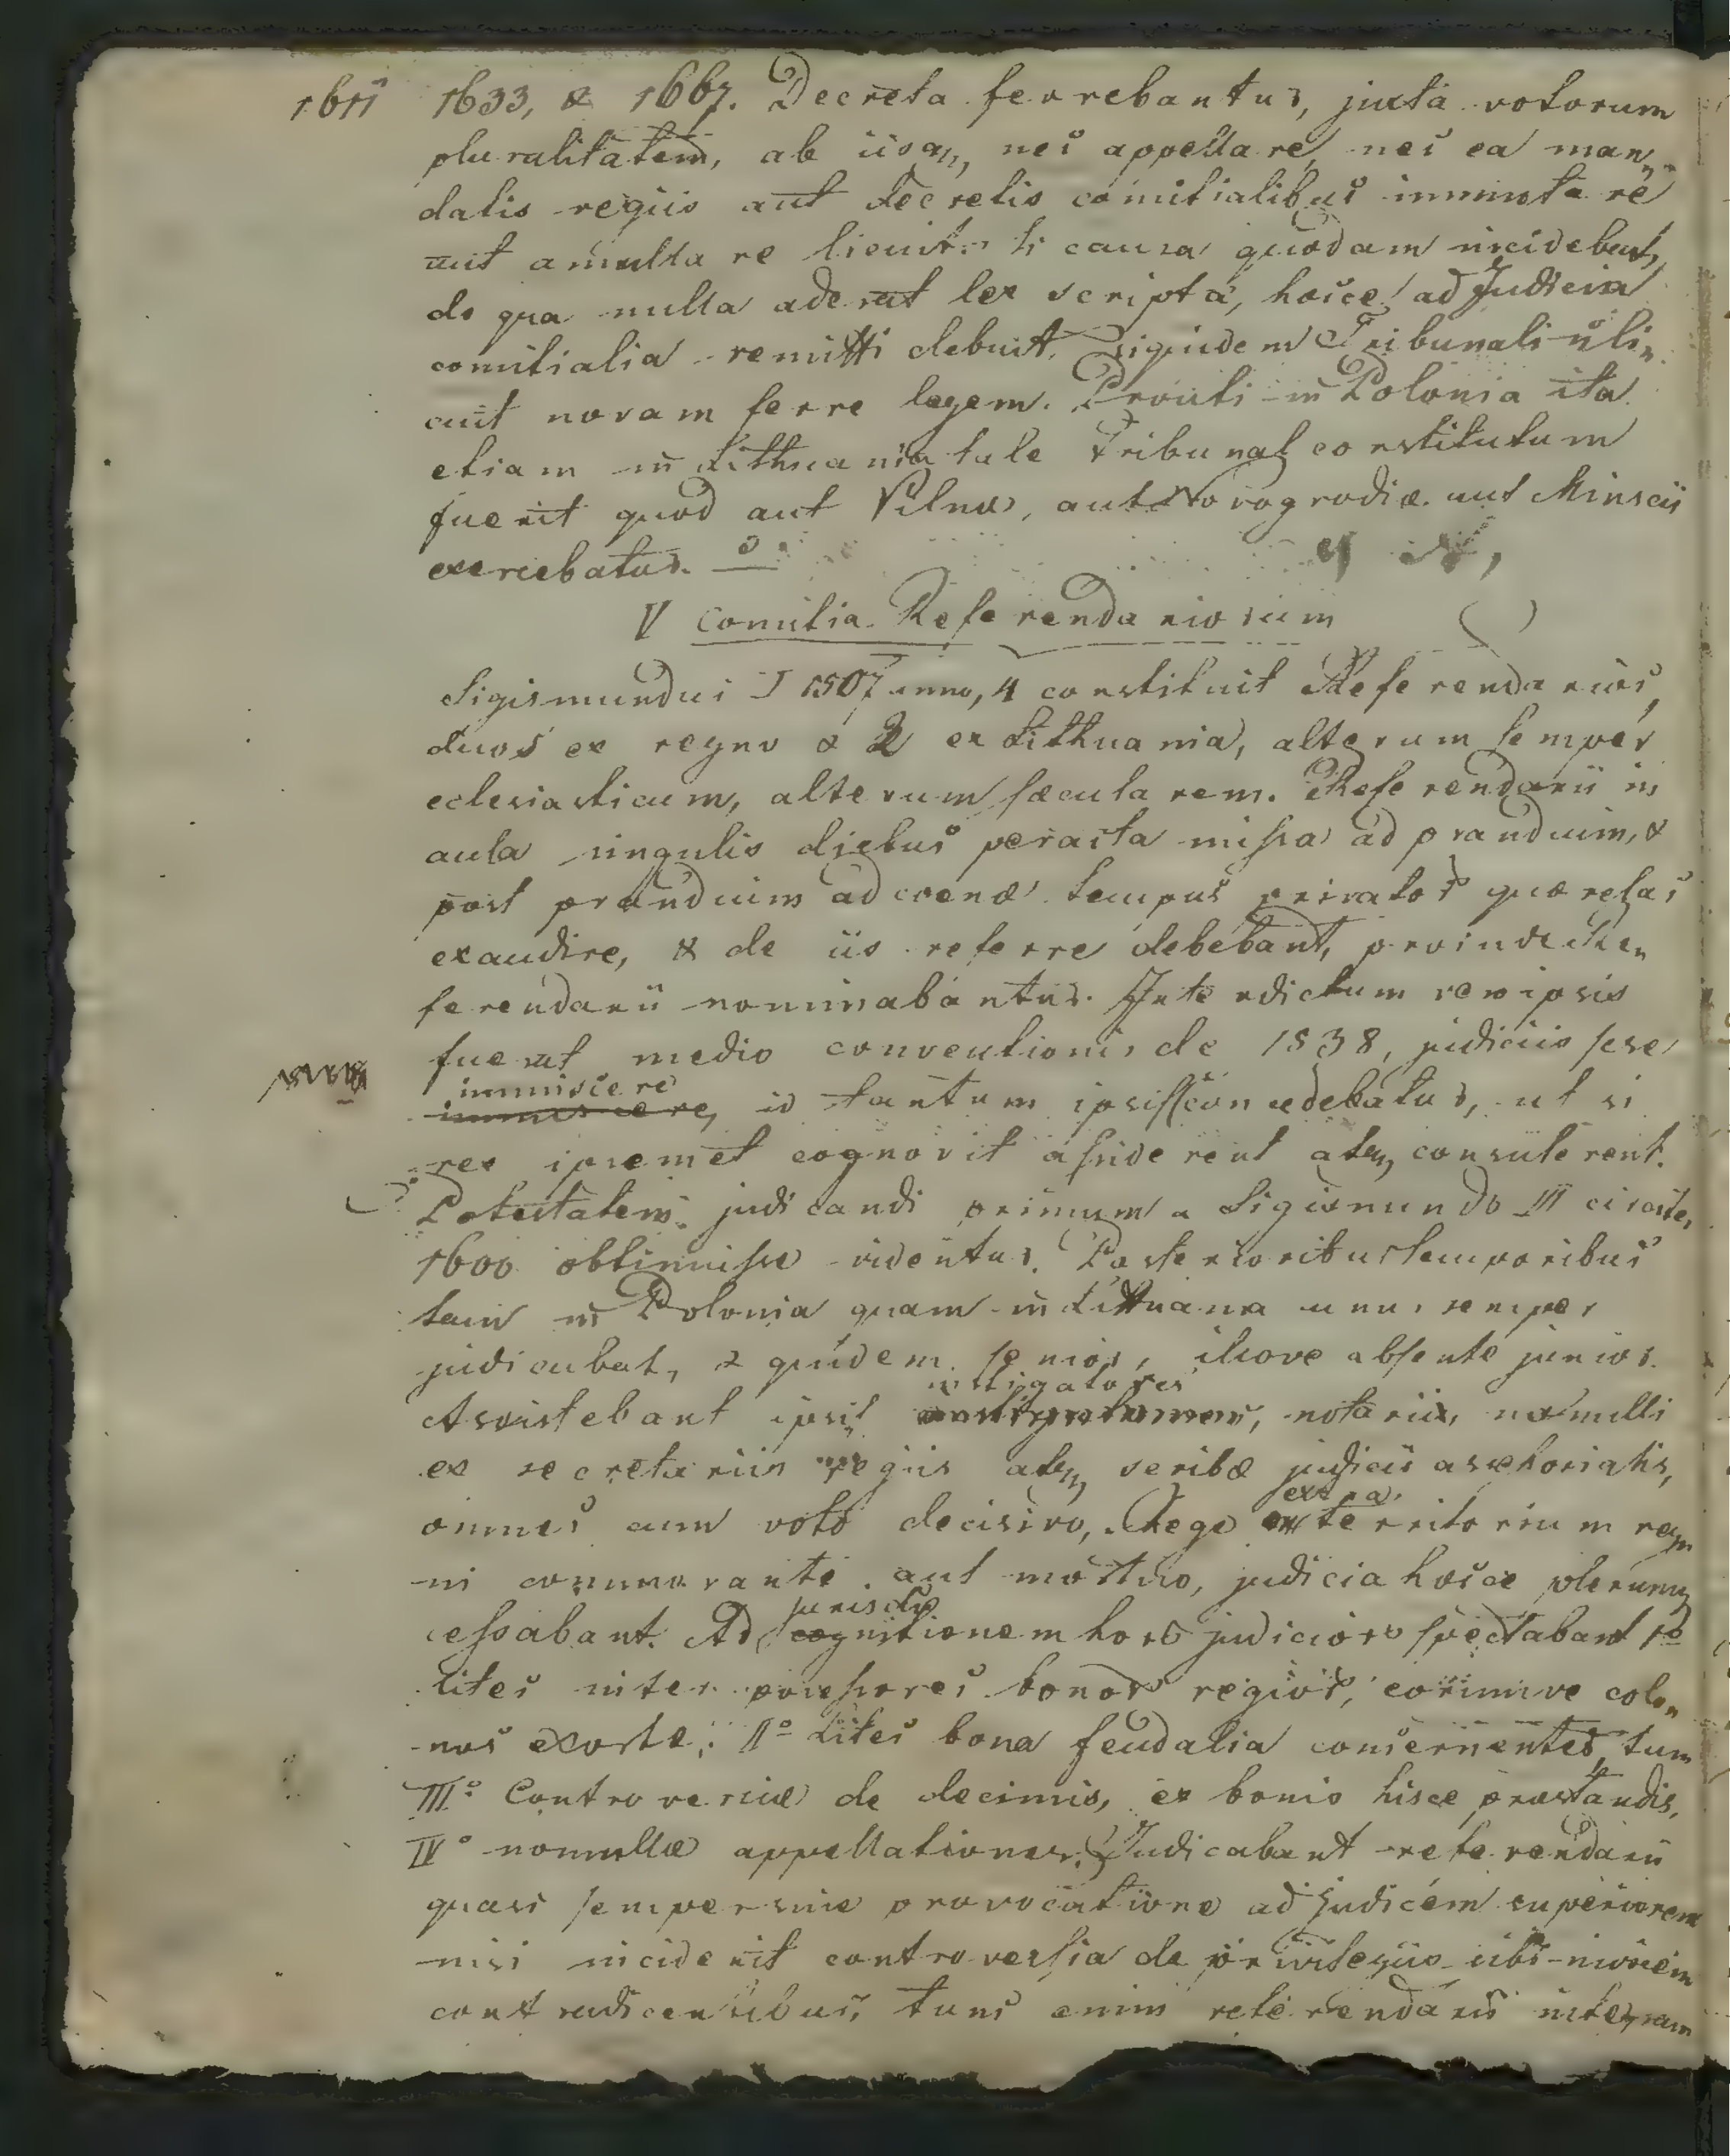 1611 1633, & 1667. Decreta ferrebantur, juxta votorum
pluralitatem, ab iisq, nei appellare, nei ea man„
datis regiis aut decretis comitialibus immutare
aut annullare licuit. Si causa quodam incidebat,
de qua nulla aderat lex scripta, hosce ad Judicia
comitialia remitti debuit, siquidem Tribunali n̄ li„
cuit novam ferre legem. Prouti in Polonia ita
etiam in Lithuania tale Tribunal constitutum
fuerit quod aut Vilnæ, aut Novogrodiæ aut Minscii
exercebatur.
V Comitia Referendariorum
Sigismundus I 1507 anno, 4 constituit Referendarios,
duos ex regno & 2 ex Lithuania, alterum semper
eclesiasticum, alterum sæcularem. Referendarii in
aula singulis diebus peracta missa ad prandium, &
post prandium ad coenæ tempus privatos quærelas
exaudire, & de iis referre debebant, proinde Re„
ferendarii nominabantur. Interdictum vero ipsis
fuerat medio conventionis de 1538, judiciis sese
immiscere
immiscere, id tantum ipsis concedebatur, ut si
rex ipsemet cognovit assiderent atq, consulerent.
Potestatem judicandi primum a Sigismundo III circiter
1600 obtinuisse videntur. Posterioribus temporibus
tam in Polonia quam in Littuania unus semper
judicabat, & quidem senior, illove absente junior.
instigatores
Assistebant ipsis, notarii, nonnulli
ex secretariis regiis atq, scribæ judicii assessorialis,
extra
omnes cum voto decisivo. Rege territorium reg„
ni commorante aut mortuo, judicia hosce plerumq
jurisdic
cessabant. Ad cognitionem horū judiciorū spectabant Iº
lites inter possessores bonor regior, eorumve colo„
nos exortæ; IIº Lites bona feudalia concernentes, tum
IIIº Controversiæ de decimis, ex bonis hisce præstandis,
IVº nonnullæ appellationes. Judicabant referendarii
quasi semper sine provocatione ad judicem superiorem
nisi inciderit controversia de privilegiis sibi invicem
contradicentibus, tunc enim referendarii integram